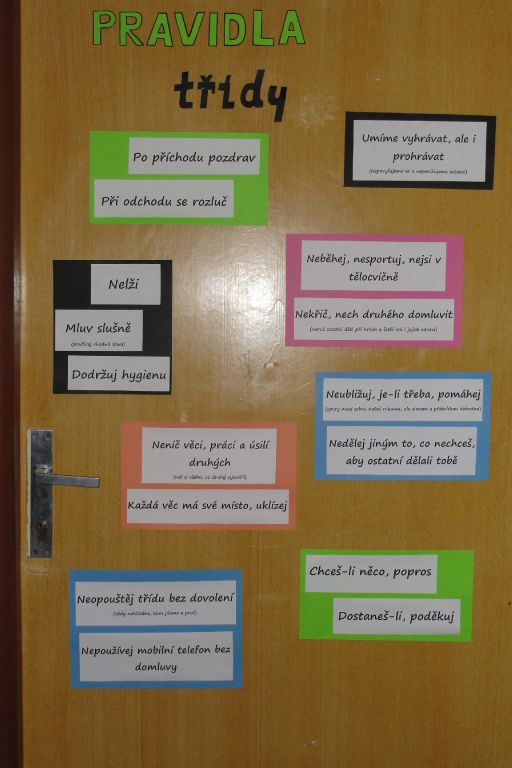 PRAVIDLA
třídy
Po příchodu pozdrav
Při odchodu se rozluč
Umíme vyhrávat, ale i
prohrávat
(nepovyšujeme se a neponižujeme ostatní)
Neběhej, nesportuj, nejsi v
tělocvičně
Nekřič, nech druhého domluvit
(neruš ostatní děti při hrách a šetři své i jejich zdraví)
Nelži
Mluv slušně
(používej vhodná slova)
Dodržuj hygienu
Neubližuj, je-li třeba, pomáhej
(spory mezi sebou neřeš rukama, ale slovem a přátelskou dohodou)
Nedělej jiným to, co nechceš,
aby ostatní dělali tobě
Nenič věci, práci a úsilí
druhých
(važ si všeho, co druhý vytvořil)
Každá věc má své místo, uklízej
Neopouštěj třídu bez dovolení
(vždy nahlásíme, kam jdeme a proč)
Nepoužívej mobilní telefon bez
domluvy
Chceš-li něco, popros
Dostaneš-li, poděkuj